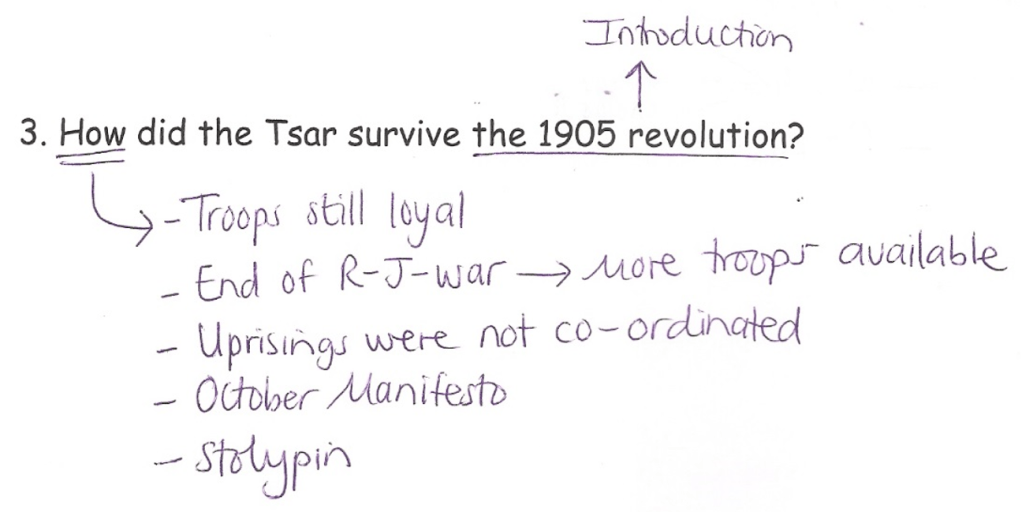 Introduction
↑
3. How did the Tsar survive the 1905 revolution?
- Troops still loyal
- End of R-J-war → More troops available
- Uprisings were not co-ordinated
- October Manifesto
- Stolypin